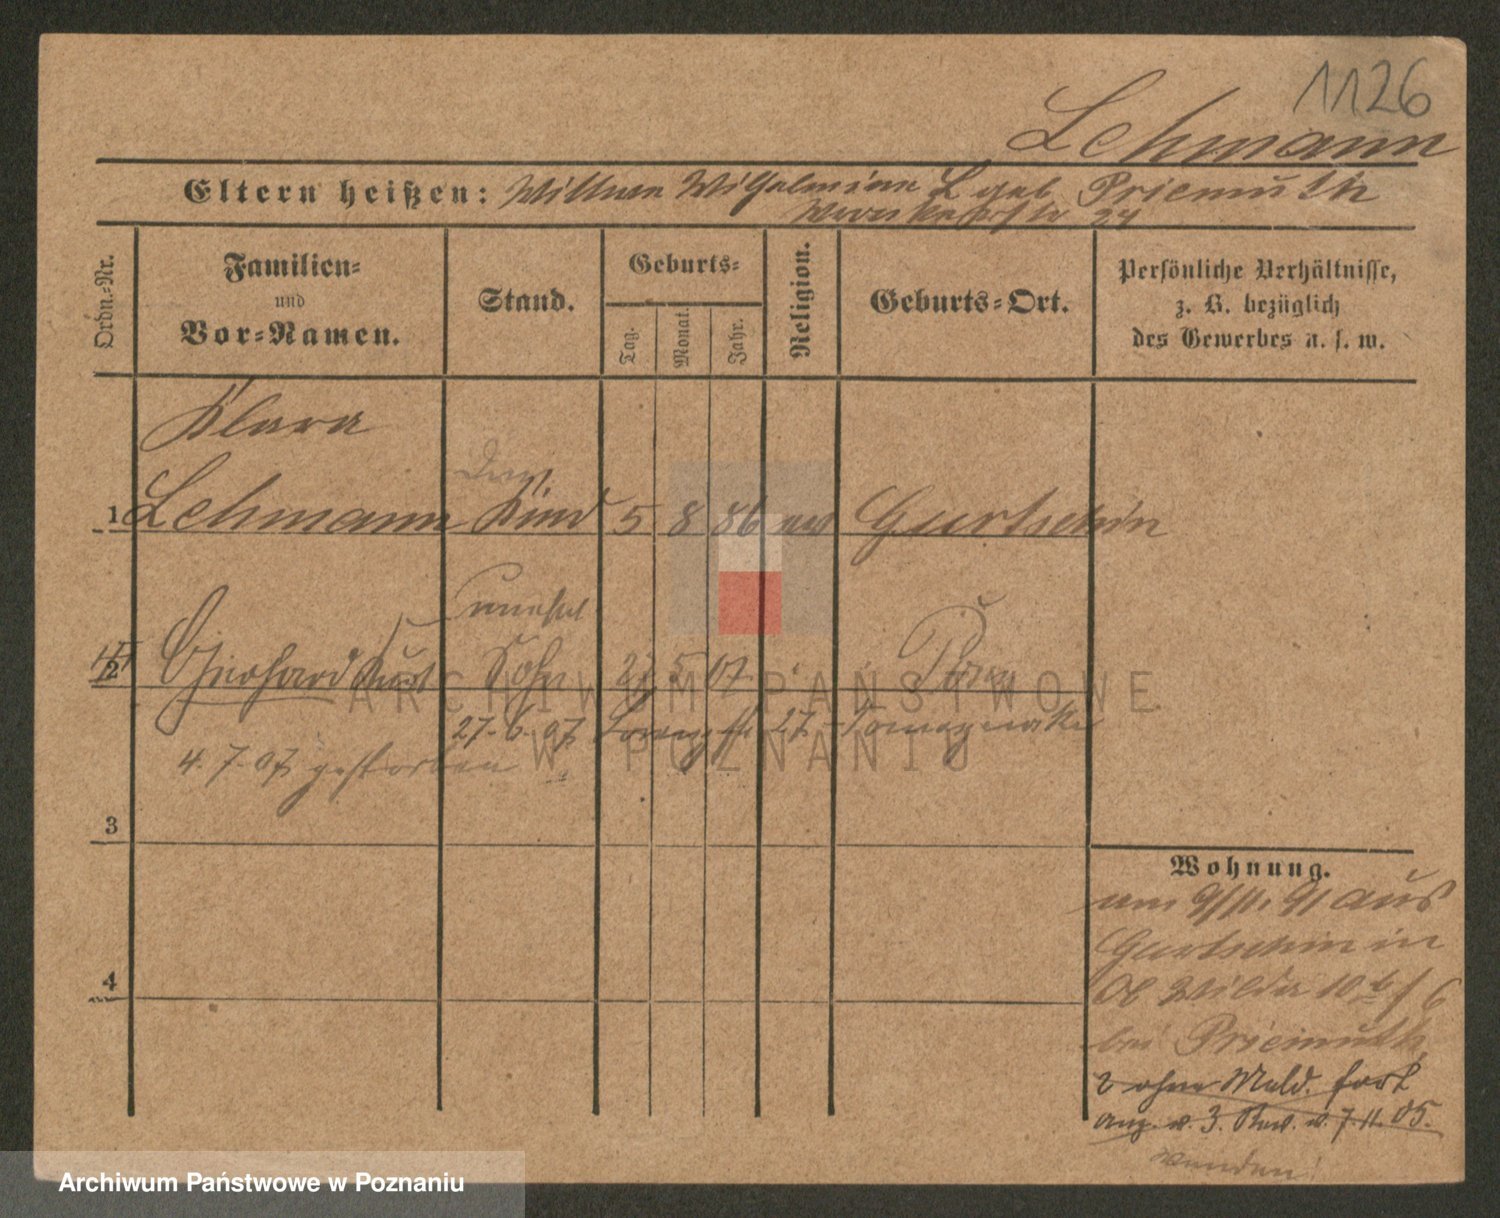 1126
Lehmann
Eltern heißen: Wittwe Wilhelmine L geb Priemuth
24
Ordn.-Nr.
Familien-
und
Vor-Namen.
Stand.
Geburts-
Tag.
Monat.
Jahr.
Religion.
Geburts-Ort.
Persönliche Verhältnisse,
z. B. bezüglich
des Gewerbes u. s. w.
Klara
1 Lehmann Kind 5 8 86 Gurtschin
2 Gerhard Kurt Sohn 5 07 Posen
27.6.07 27
4.7.07 gestorben
3
4
Wohnung.
am 9/11. 91 aus
Gurtschin in
Ob Wilda 10
bei Priemuth
2 ohne Meld. fort
anz. d. 3. Rev. v. 7.11.05.
wenden!
ARCHIWUM PAŃSTWOWE
W POZNANIU
Archiwum Państwowe w Poznaniu